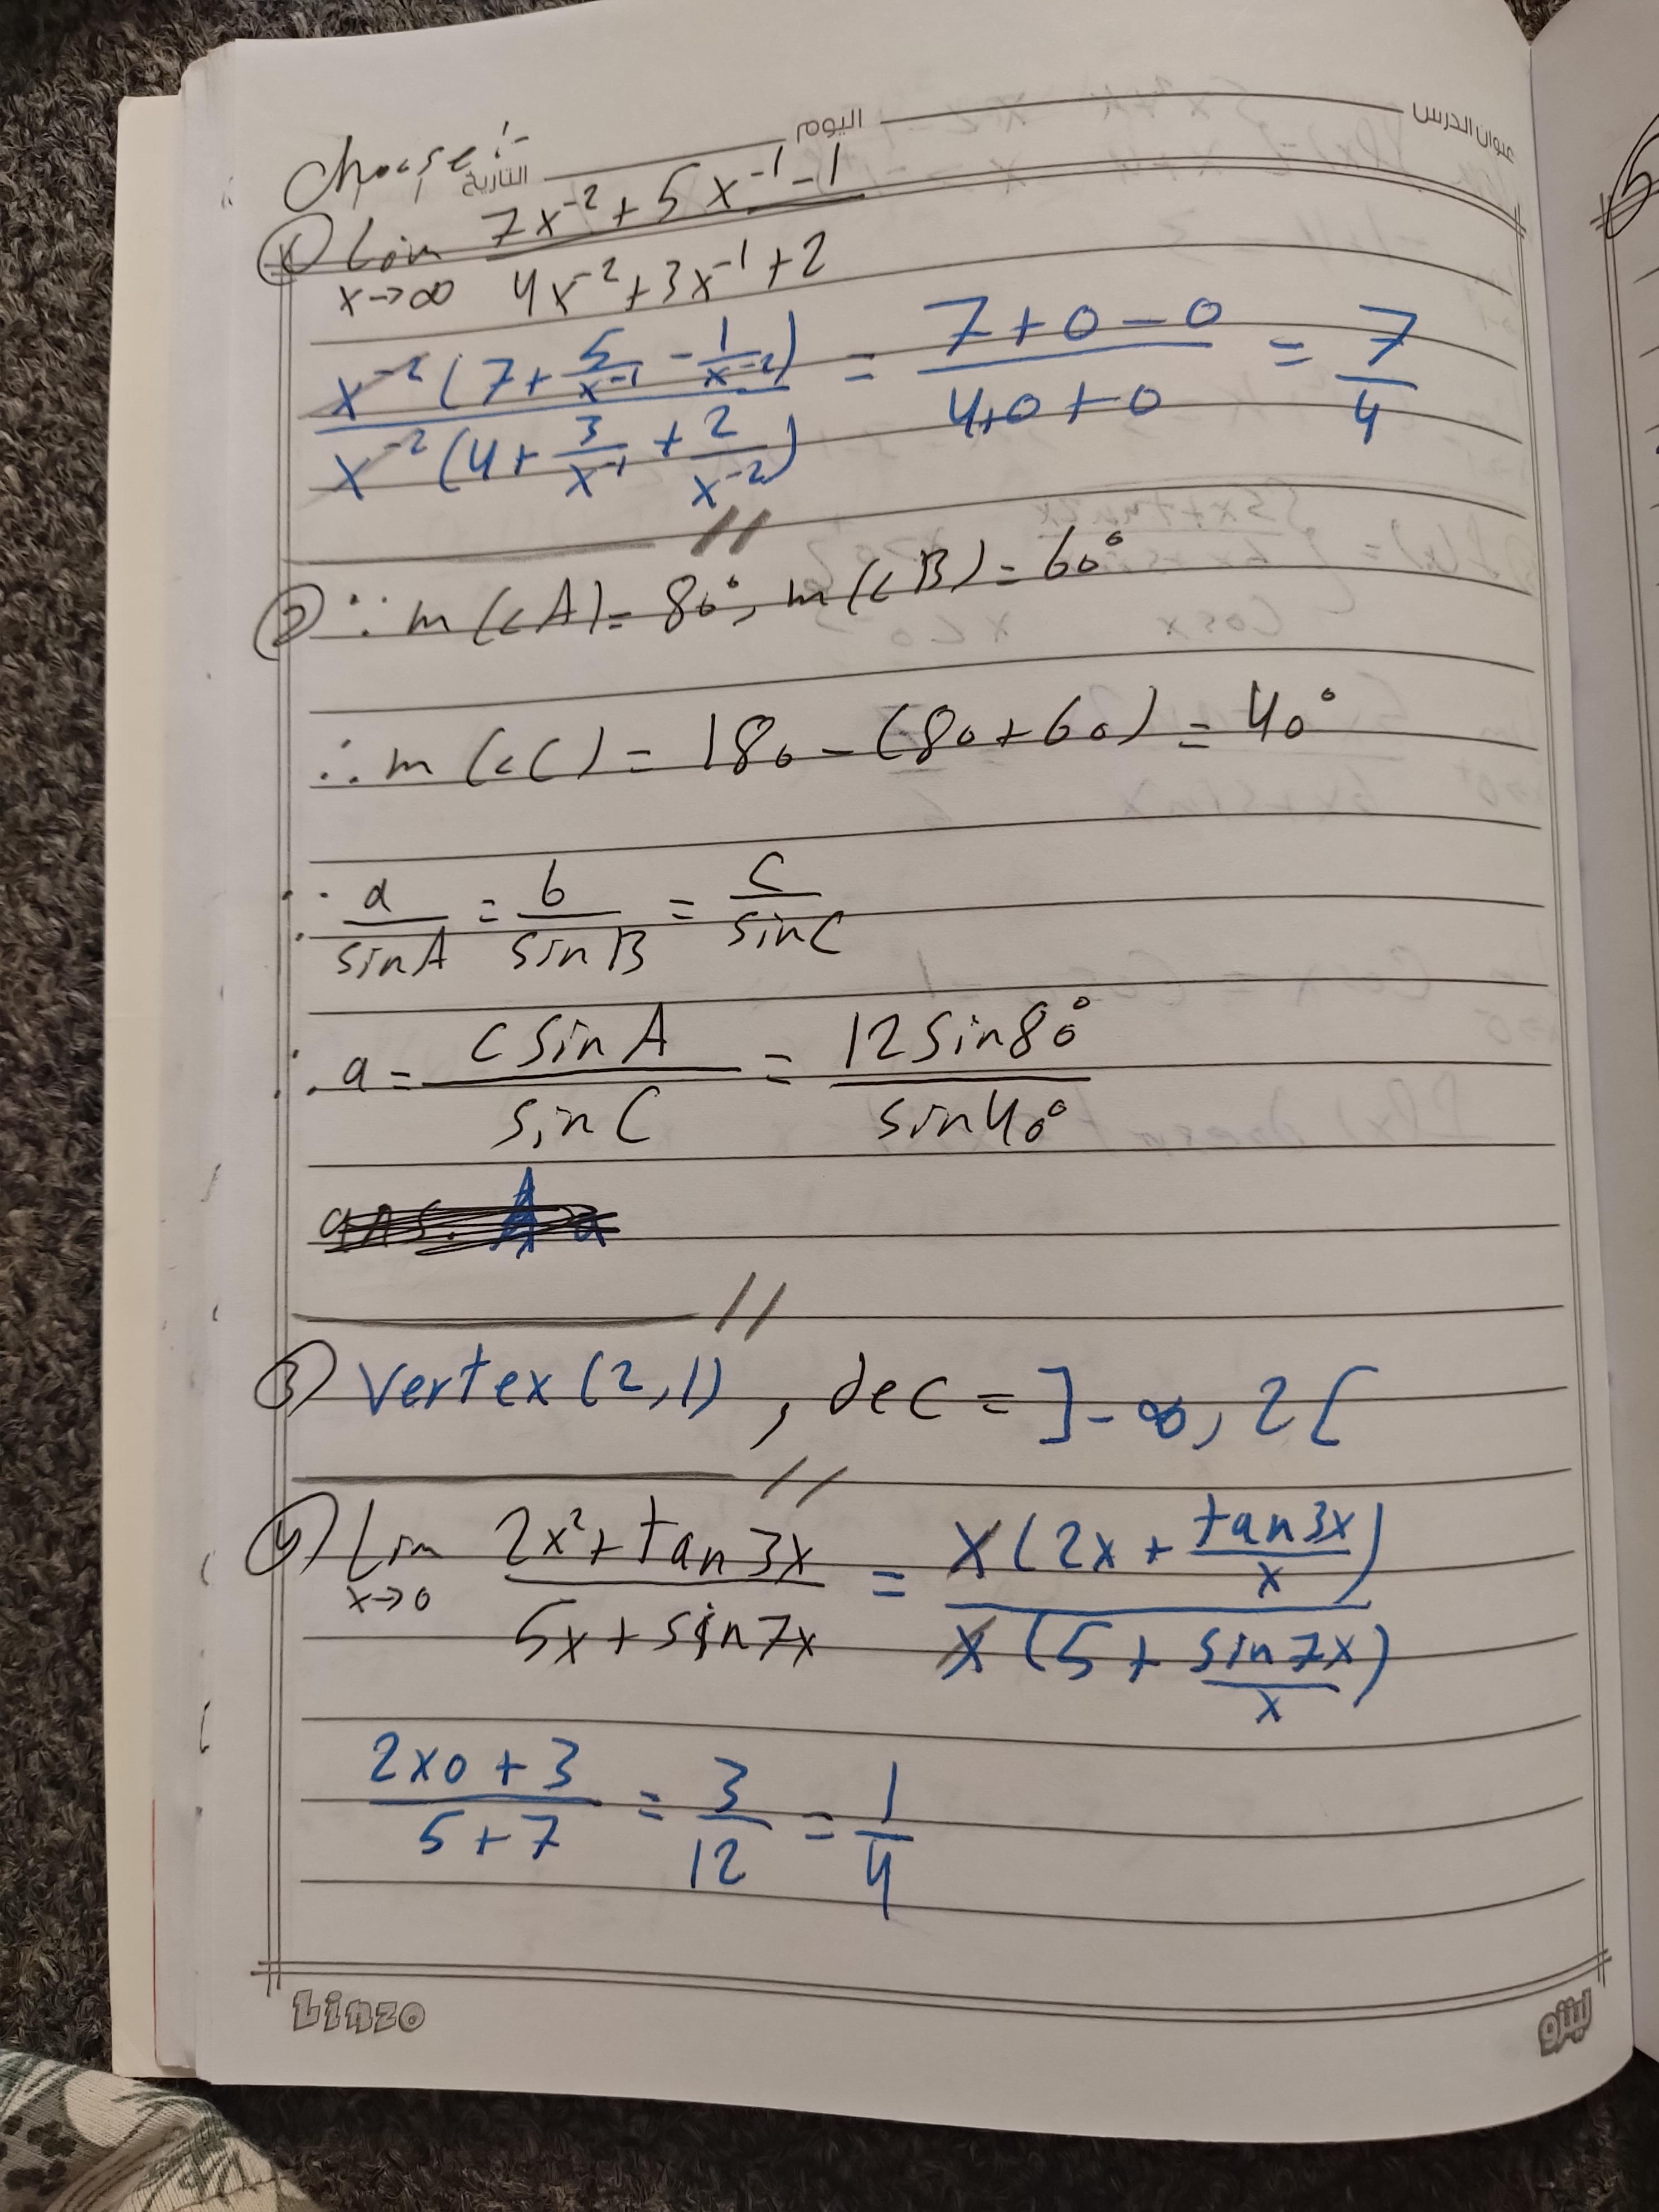 عنوان الدرس اليوم
Choose :- التاريخ
① Lim x→∞ (7x⁻² + 5x⁻¹ - 1) / (4x⁻² + 3x⁻¹ + 2)
x⁻² (7 + 5/x⁻¹ - 1/x⁻²) / x⁻² (4 + 3/x⁻¹ + 2/x⁻²) = (7 + 0 - 0) / (4 + 0 + 0) = 7/4
② ∵ m(<A) = 80°, m(<B) = 60°
∴ m(<C) = 180 - (80 + 60) = 40°
∵ a/sinA = b/sinB = c/sinC
∴ a = c sinA / sinC = 12 sin80° / sin40°
③ vertex (2,1), dec = ]-∞, 2[
④ Lim x→0 (2x² + tan3x) / (5x + sin7x) = x(2x + tan3x/x) / x(5 + sin7x/x)
(2x0 + 3) / (5 + 7) = 3/12 = 1/4
Linzo لينزو